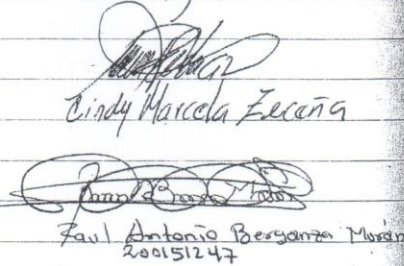 Cindy Marcela Zeceña
Raul Antonio Berganza Morán
200151247